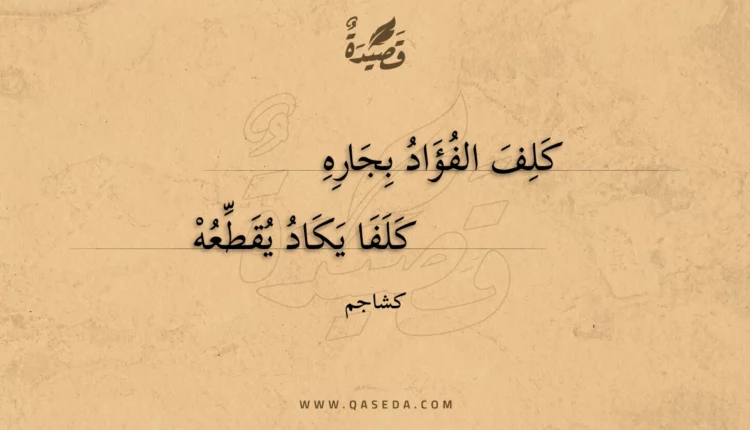 قَصِيْدَةٌ
كَلِفَ الفُؤَادُ بِجَارِهِ
كَلَفَا يَكَادُ يُقَطِّعُهْ
كشاجم
WWW.QASEDA.COM